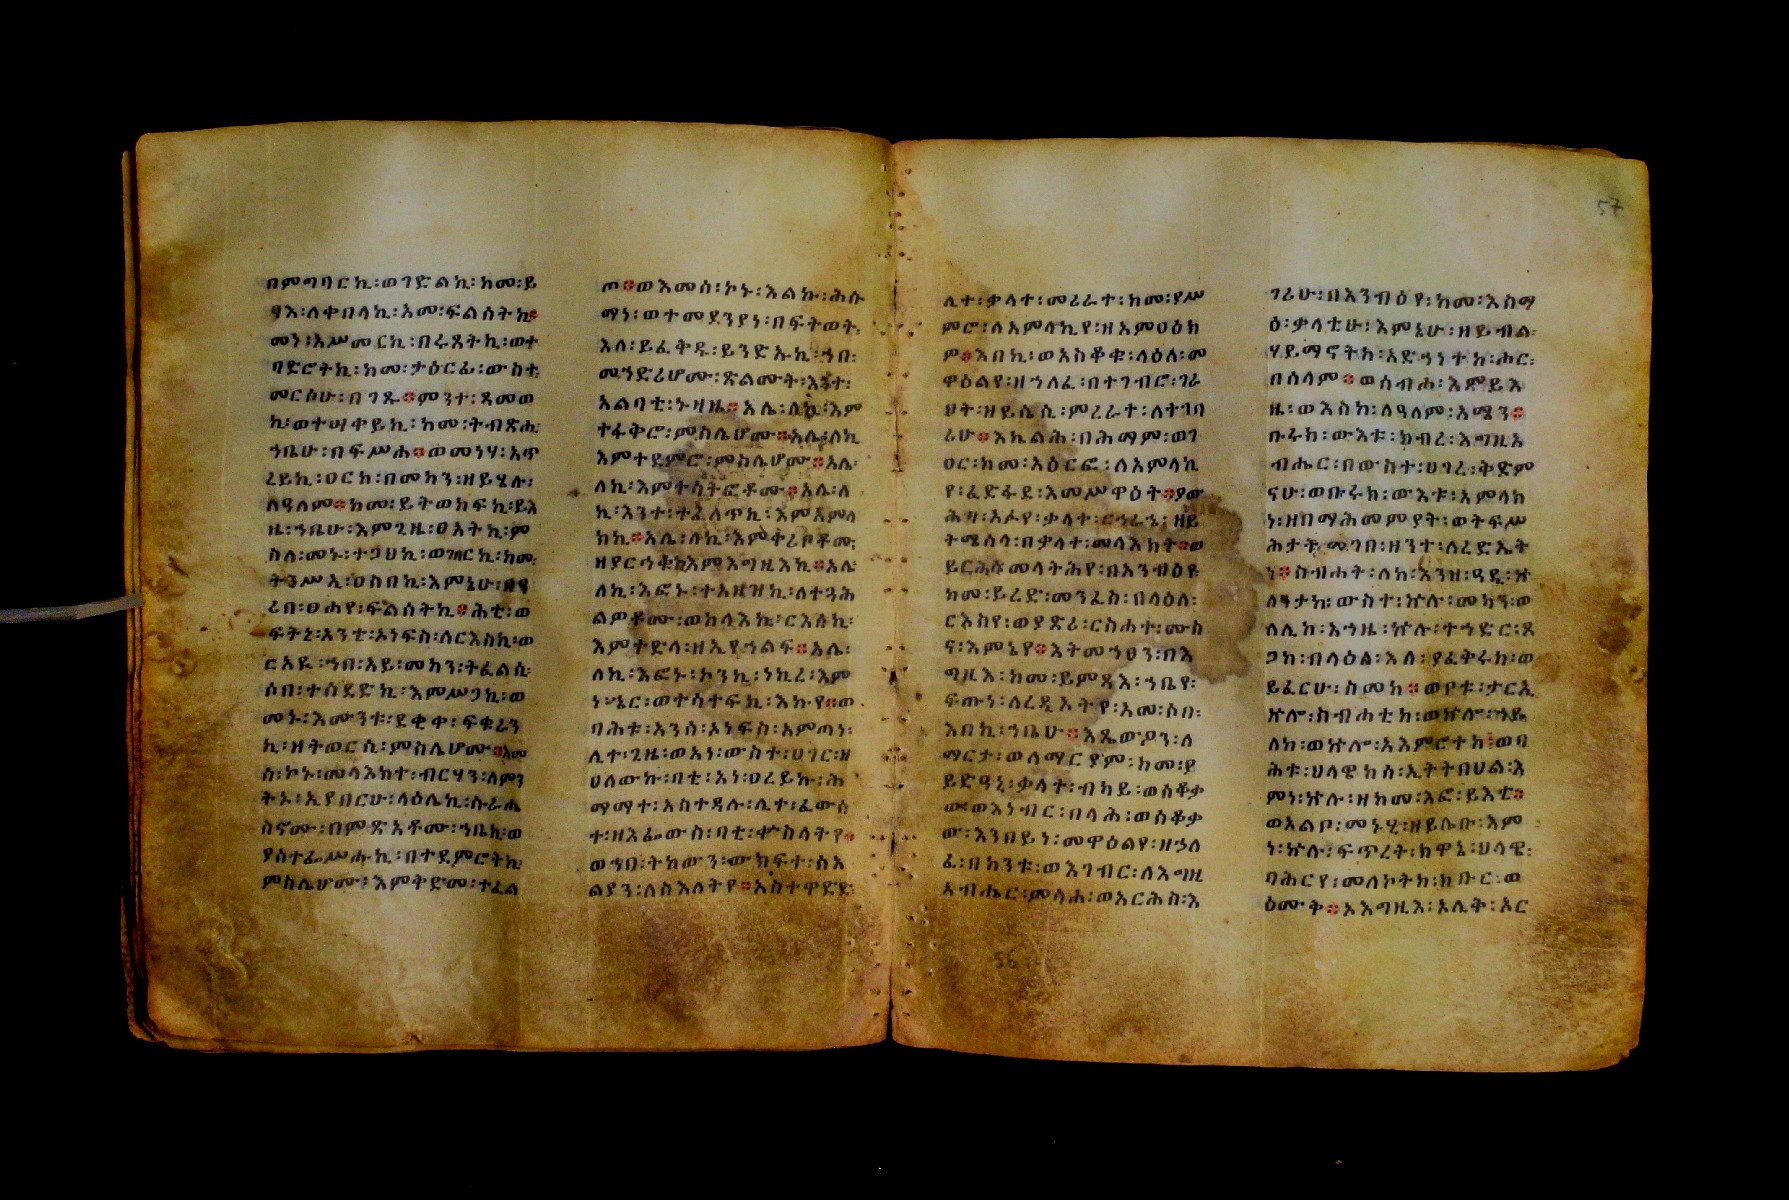 በምግባርኪ፡ወገድልኪ፡ከመ፡ይ
ፃእ፡ለቀበላኪ፡አመ፡ፍልሰትኪ።
መኑ፡አሥመርኪ፡በሩጸትኪ፡ወተ
ባድሮትኪ፡ከመ፡ታዕርፊ፡ውስተ፡
መርሶሁ፡በገጹ።ምንተ፡ጻመወ
ኪ፡ወተሣቀይኪ፡ከመ፡ትብጽሒ
ኀቤሁ፡በፍሥሐ።ወመነሃ፡አጥ
ረይኪ፡ዐርከ፡በመከን፡ዘይሄሉ፡
ለዓለም።ከመ፡ይትወከፍኪ፡ይእ
ዜ፡ኀቤሁ፡እምጊዜ፡ፀአትኪ፡ም
ስለ፡መኑ፡ተጋህኪ፡ወገበርኪ፡ከመ፡
ትንሥኢ፡ዐስበኪ፡እምኔሁ፡
ሪበ፡ፀሐየ፡ፍልሰትኪ።ሕቲ፡ወ
ፍትኒ፡አንቲ፡ኦነፍስ፡ለርእስኪ፡ወ
ርአዪ፡ኀበ፡አይ፡መከን፡ትፈልሲ፡
ሶበ፡ተሰደድኪ፡እምሥጋኪ፡ወ
መኑ፡እሙንቱ፡ደቂቀ፡ፍቁራን
ኪ፡ዘትወርሲ፡ምስሌሆሙ።እመ
ሰ፡ኮኑ፡መላእክተ፡ብርሃን፡
ትኑ፡ኢያበርሁ፡ላዕሌኪ፡
ስኖሙ፡በምጽአቶሙ፡ኀቤኪ፡ወ
ያስተፌሥሑኪ፡በተደምሮትኪ፡
ምስሌሆሙ፡እምቅድመ፡ተፈል
ጦ።ወእመሰ፡ኮኑ፡እልኩ፡ሕሱ
ማነ፡ወተመደንያነ፡በፍትወት፡
እለ፡ይፈቅዱ፡ይንድኡኪ፡ኀበ፡
መኀድሪሆሙ፡ጽልሙት፡እንተ፡
አልባቲ፡ኑዛዜ።አሌ፡ለኪ፡እም
ተፋቅሮ፡ምስሌሆሙ።አሌ፡ለኪ
እምተደምሮ፡ምስሌሆሙ።አሌ፡
ለኪ፡እምተሳትፎቶሙ።አሌ፡ለ
ኪ፡እንተ፡ተፈለጥኪ፡እምአምላ
ክኪ።አሌ፡ለኪ፡
ዘያርኅቀኪ፡እምእግዚእኪ።አሌ፡
ለኪ፡እፎኑ፡ተአዘዝኪ፡ለተጓሕ
ልዎቶሙ፡ወከላእኪ፡ርእሰኪ፡
እምተድላ፡ዘኢየኀልፍ።አሌ፡
ለኪ፡እፎኑ፡ኮንኪ፡ነኪረ፡እም
ነ፡ኄር፡ወተሳተፍኪ፡እኩየ።ወ
ባሕቱ፡አንሰ፡ኦነፍስ፡አምጣነ፡
ሊተ፡ጊዜ፡ወአነ፡ውስተ፡ሀገር፡ዘ
ሀለውኩ፡ባቲ፡አነ፡ዐረይኩ፡ሕ
ማማተ፡አስተዳሉ፡ሊተ፡ፈውሰ
ተ፡ዘእፌውስ፡ባቲ፡ቍስላትየ።
ወኀበ፡ትከውን፡ውክፍተ፡ስእ
ልያን፡ለስእለትየ።አስተዋድድ፡
ሊተ፡ቃላተ፡መሪራተ፡ከመ፡ያሥ
ምሮ፡ለአምላኪየ፡ዘአምዐዕክ
ዎ።እበኪ፡ወአስቆቁ፡ላዕለ፡መ
ዋዕልየ፡ዘኀለፈ፡በተገብሮ፡ገራ
ህት፡ዘይሴሲ፡ምረራተ፡ለተገባ
ሪሁ።እኬልሕ፡በሕማም፡ወገ
ዐር፡ከመ፡አዕርፎ፡ለአምላኪ
የ፡ፈድፋደ፡እመሥዋዕት።ያው
ሕዛ፡አፉየ፡ቃላተ፡ርኅራኄ፡ዘይ
ትሜሰላ፡በቃላተ፡መላእክት።ወ
ይርሕሳ፡መላትሕየ፡በአንብዕየ፡
ከመ፡ይረድ፡መንፈስ፡በላዕለ፡
ርእስየ፡ወያጽሪ፡ርስሐተ፡ሙስ
ና፡እምኔየ።እትመኀፀን፡በእ
ግዚእ፡ከመ፡ይምጻእ፡ኀቤየ፡
ፍጡነ፡ለረዲኦትየ፡አመ፡ሶበ፡
እበኪ፡ኀቤሁ።እጼውዖን፡ለ
ማርታ፡ወለማርያም፡ከመ፡ያ
ይድዓኒ፡ቃላተ፡ብካይ፡ወሰቆቃ
ው፡ወእነብር፡በላሕ፡ወሰቆቃ
ው፡እንበይነ፡መዋዕልየ፡ዘኃለ
ፈ፡በከንቱ፡ወእገብር፡ለእግዚ
አብሔር፡ምሳሐ፡ወአርሕስ፡እ
ገሪሁ፡በአንብዕየ፡ከመ፡እስማ
ዕ፡ቃላቲሁ፡እምኔሁ፡ዘይብል፡
ሃይማኖትከ፡አድኀነተከ፡ሑር፡
በሰላም።ወስብሐ፡እምይእ
ዜ፡ወእስከ፡ለዓለም፡አሜን።
ቡሩክ፡ውእቱ፡ክብረ፡እግዚአ
ብሔር፡በውስተ፡ሀገረ፡ቅድም
ናሁ፡ወቡሩክ፡ውእቱ፡አምላክ
ነ፡ዘበማሕመምያት፡ወትፍሥ
ሕታት፡መገበ፡ዘንተ፡ለረድኤት
ነ።ስብሐት፡ለከ፡እንዘ፡ዓዲ፡ኵ
ለንታከ፡ውስተ፡ኵሉ፡መካን፡ወ
ለሊከ፡አኀዜ፡ኵሉ፡ተኀድር፡ጸ
ጋከ፡በላዕል፡እለ፡ያፈቅሩከ፡ወ
ይፈርሁ፡ስመከ።ወየቱ፡ታርኢ
ኵሎ፡ስብሐቲከ፡ወኵሎ፡ኀይ
ለከ፡ወኵሎ፡አእምሮተከ፡ወባ
ሕቱ፡ህላዌከሰ፡ኢትትበሀል፡እ
ምነ፡ኵሉ፡ዘከመ፡እፎ፡ይእቲ።
ወአልቦ፡መኑሂ፡ዘይሌቡ፡እም
ነ፡ኵሉ፡ፍጥረት፡ክዋኔ፡ህላዌ፡
ባሕርየ፡መለኮትከ፡ክቡር፡ወ
ዕሙቅ።ኦእግዚእ፡ኦሊቅ፡ኦር
57
56